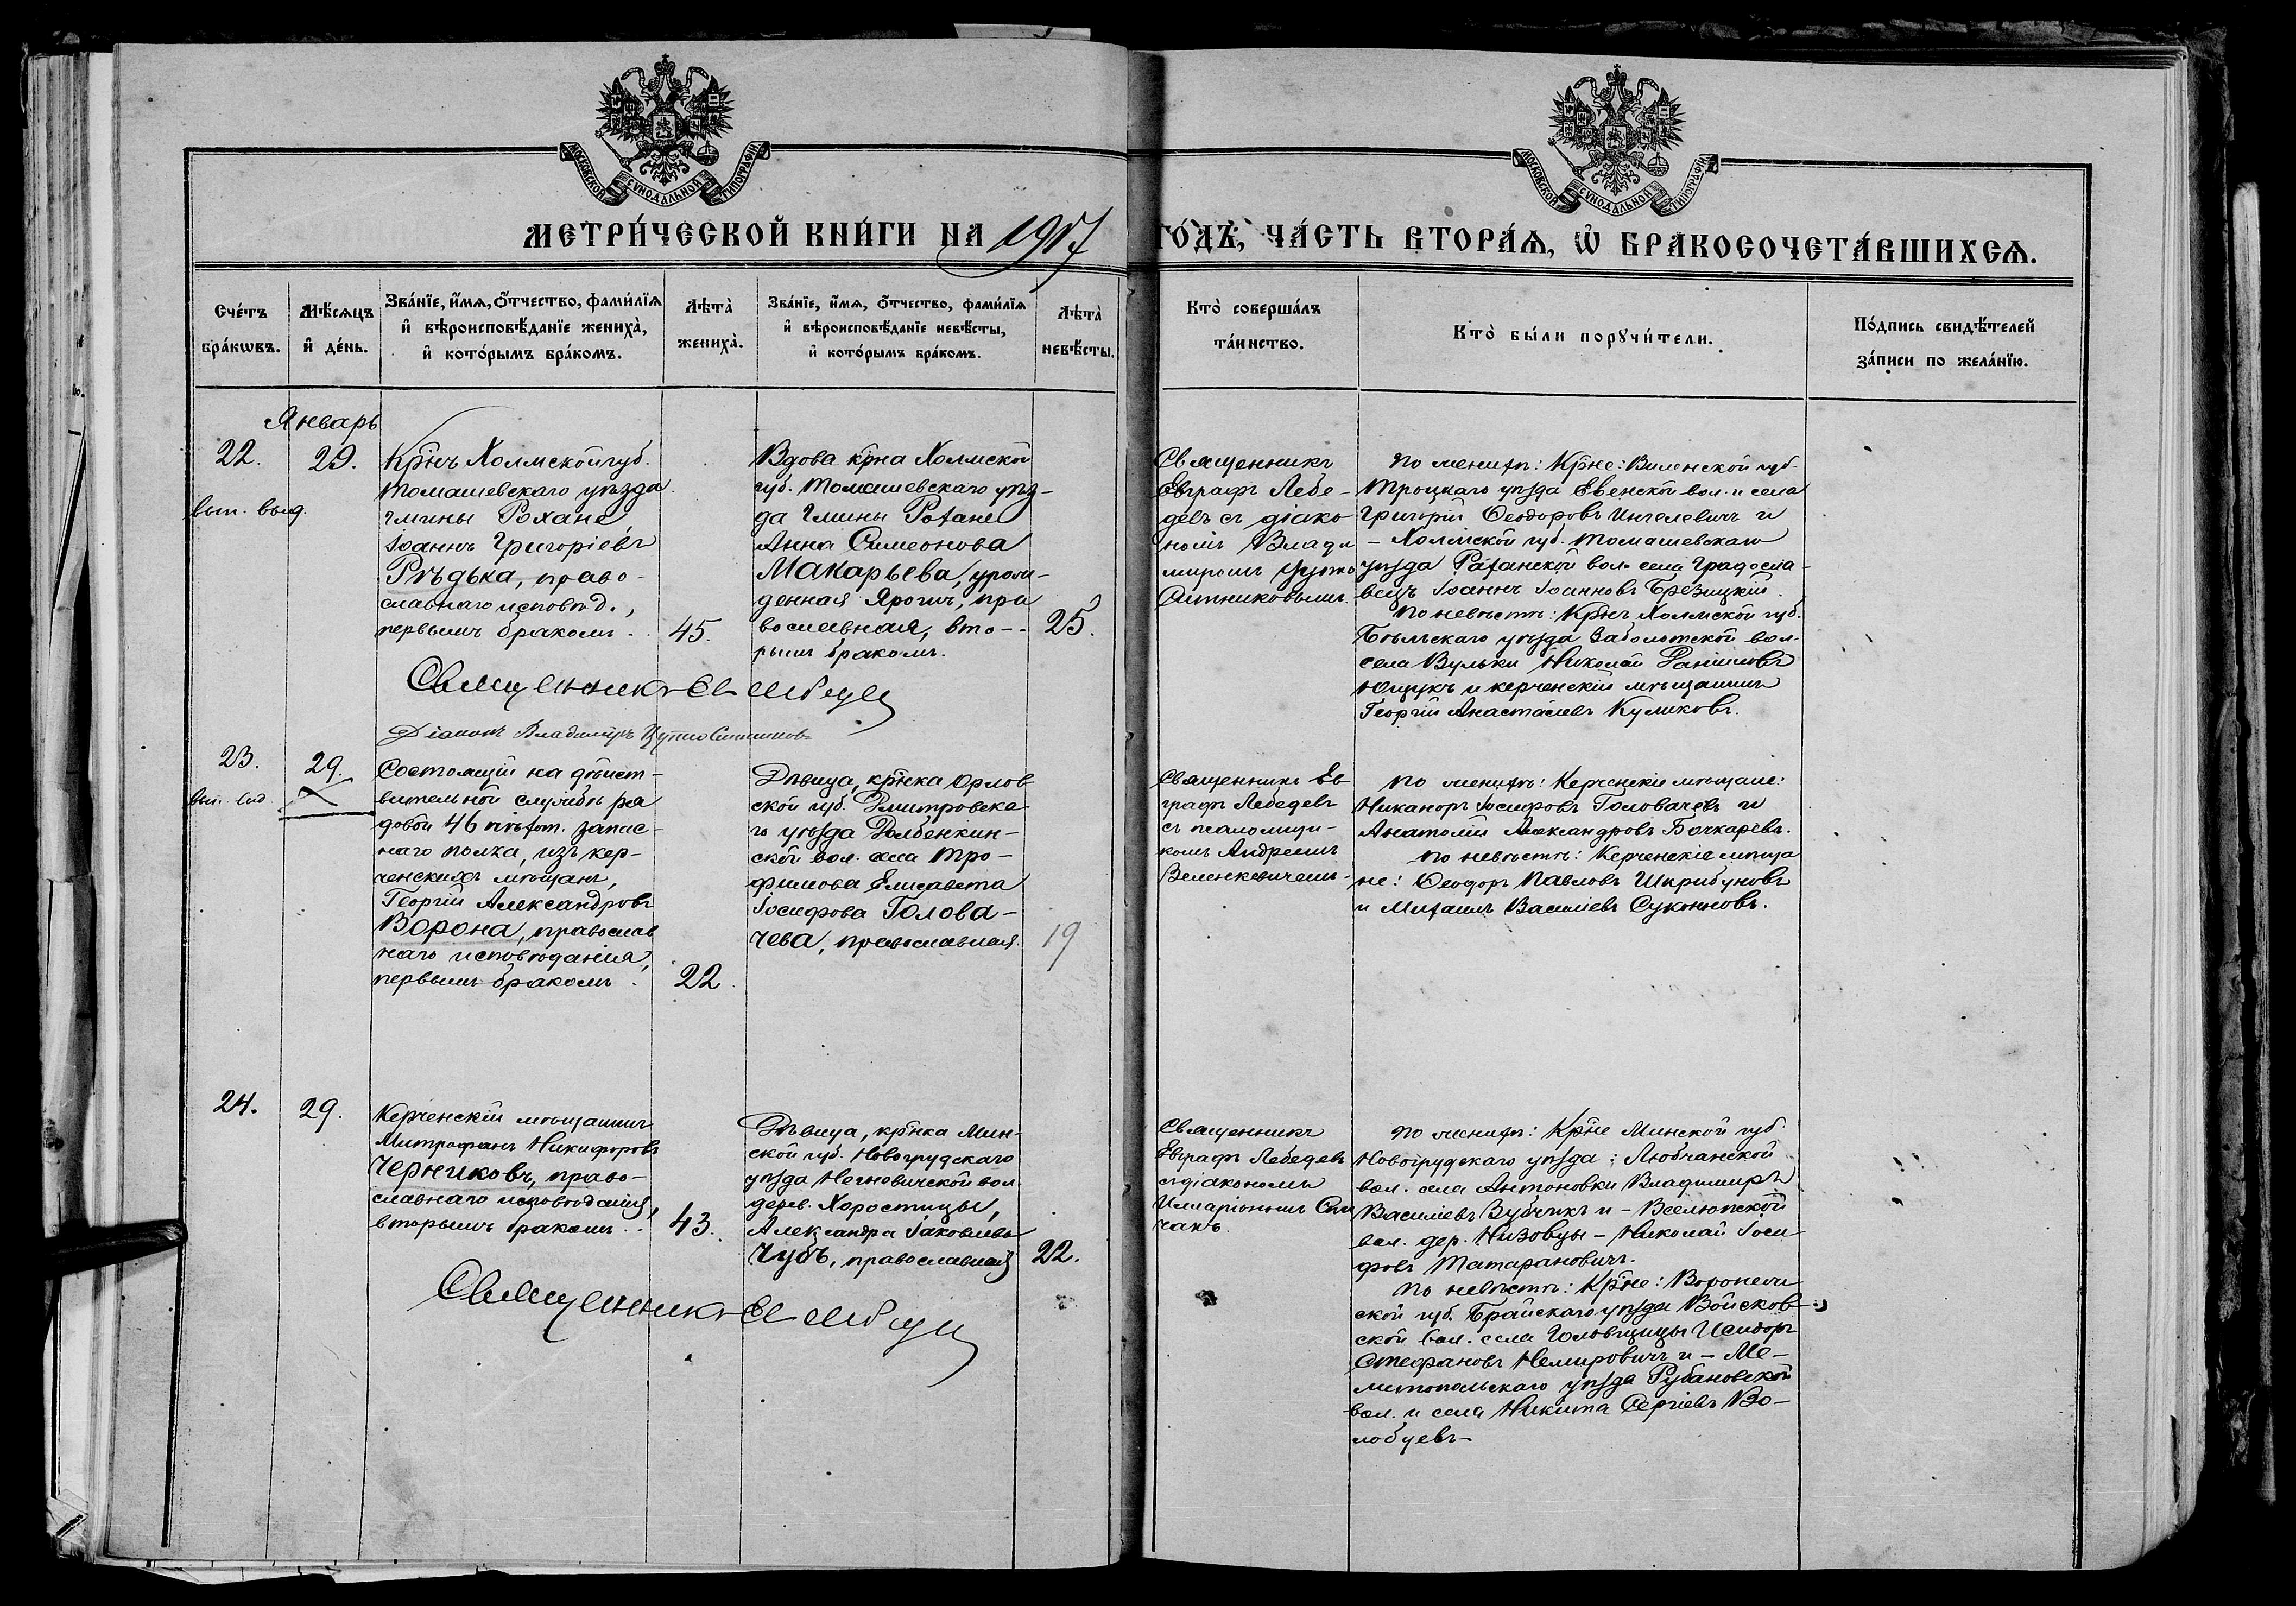 МОСКОВСКОЙ СУНОДАЛЬНОЙ ТИПОГРАФІИ
МОСКОВСКОЙ СУНОДАЛЬНОЙ ТИПОГРАФІИ
МЕТРИ́ЧЕСКОЙ КНИ́ГИ НА 1917 ГО́ДЪ, ЧА́СТЬ ВТОРА́Ѧ, Ѡ҆ БРАКОСОЧЕТА́ВШИХСѦ.
Сче́тъ
бра́кѡвъ.
Мѣ́сѧцъ
и҆ де́нь.
Зва́нїе, и҆́мѧ, ѻ҆́тчество, фами́лїѧ
и҆ вѣроисповѣ́данїе жениха̀,
и҆ кото́рымъ бра́комъ.
Лѣта̀
жениха̀.
Зва́нїе, и҆́мѧ, ѻ҆́тчество, фами́лїѧ
и҆ вѣроисповѣ́данїе невѣ́сты,
и҆ кото́рымъ бра́комъ.
Лѣта̀
невѣ́сты.
Кто̀ соверша́лъ
та́инство.
Кто̀ бы́ли порꙋчи́тели.
По́дпись свидѣ́телей
за́писи по жела́нїю.
Январь
22.
29.
Крнъ Холмской губ.
Томашевскаго уѣзда
гмины Рохане
Іоаннъ Григоріевъ
Рѣдька, право-
славнаго исповѣд.,
первымъ бракомъ.
45.
Вдова крна Холмской
губ. Томашевскаго уѣз-
да гмины Рахане
Анна Симеонова
Макарьева, урож-
денная Ярошъ, пра
вославная, вто--
рымъ бракомъ.
25.
Священникъ
Евграфъ Лебе-
девъ съ діако
номъ Влади
миромъ
Ситниковымъ.
По женихѣ: Крне: Виленской губ.
Троцкаго уѣзда Евенской вол. и села
Григорій Ѳеодоровъ Ингелевичъ и
- Холмской губ. Томашевскаго
уѣзда Раханской вол. села Градосла-
вецъ Іоаннъ Іоанновъ Брезицкій.
По невѣстѣ: Крнъ Холмской губ.
Бѣльскаго уѣзда Заболотской вол.
села Вульки Николай
Ющукъ и керченскій мѣщанинъ
Георгій Анастасіевъ Куликовъ.
Священникъ Ев
Діаконъ Владимиръ
23.
29.
Состоящій на дѣйст-
вительной службѣ ря
довой 46 пѣхот. запас-
наго полка, изъ кер-
ченскихъ мѣщанъ,
Георгій Александровъ
Ворона, православ
наго исповѣданія,
первымъ бракомъ.
22.
Дѣвица, крнка Орлов
ской губ. Дмитровска
го уѣзда Долбенкин-
ской вол. села Тро-
фимова Елисавета
Іосифова Голова-
чева, православная.
19
Священникъ Ев
графъ Лебедевъ
съ псаломщи-
комъ Андреемъ
Веленкевичемъ.
По женихѣ: Керченскіе мѣщане:
Никаноръ Іосифовъ Головачевъ и
Анатолій Александровъ Бочкаревъ.
По невѣстѣ: Керченскіе мѣща
не: Ѳеодоръ Павловъ Шкрибуновъ
и Михаилъ Василіевъ Суконновъ.
24.
29.
Керченскій мѣщанинъ
Митрофанъ Никифоровъ
Черниковъ, право-
славнаго исповѣданія,
вторымъ бракомъ.
43.
Дѣвица, крнка Мин-
ской губ. Новогрудскаго
уѣзда Негневичской вол.
дерев. Хоростицы,
Александра Іаковлева
Чубъ, православная
22.
Священникъ
Евграфъ Лебедевъ
съ діакономъ
Иларіономъ
По женихѣ: Крне Минской губ.
Новогрудскаго уѣзда: Любчанской
вол. села Антоновки Владимиръ
Василіевъ Зубчикъ и - Вселюпской
вол. дер. Низовцы - Николай Іоси
фовъ Татарановичъ.
По невѣстѣ: Крне: Воронеж
ской губ. уѣзда Войсков-
ской вол. села Головщицы Исидоръ
Стефановъ Немировичъ и - Ме-
литопольскаго уѣзда Рубановской
вол. и села Никита Сергіевъ Во-
лобуевъ-
Священникъ Ев